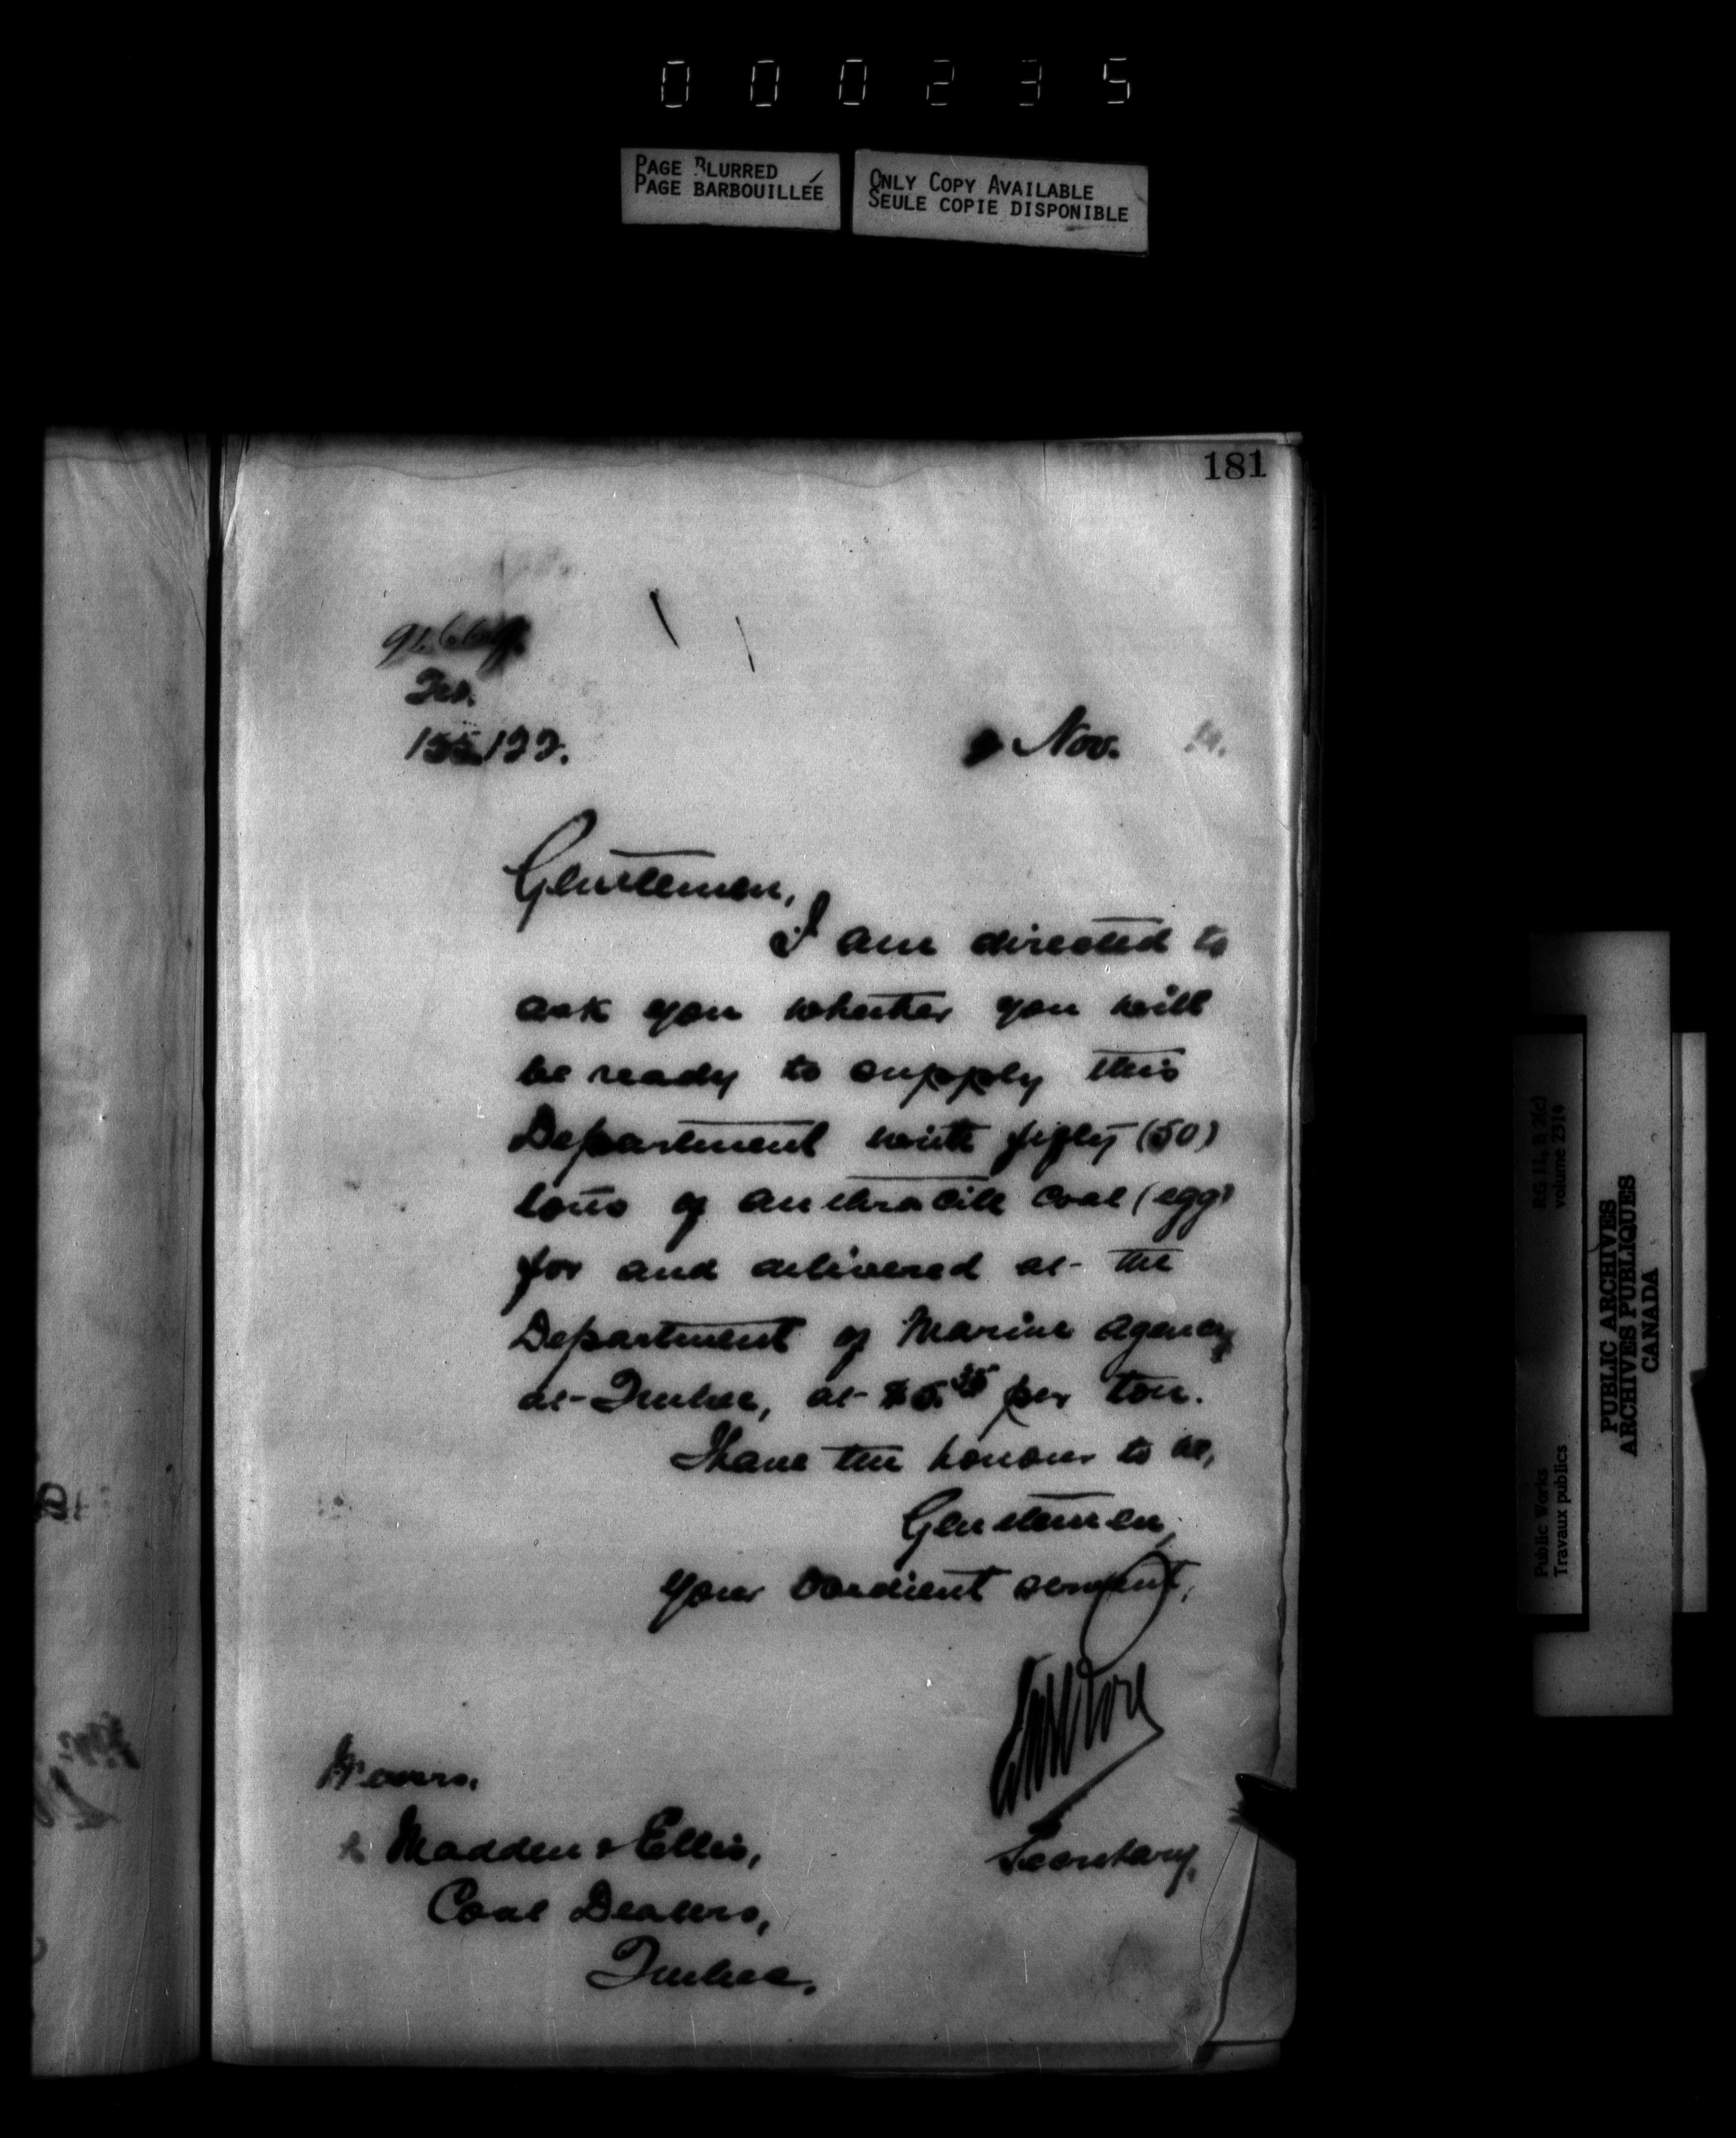 000235
PAGE BLURRED
PAGE BARBOUILLÉE
ONLY COPY AVAILABLE
SEULE COPIE DISPONIBLE
181
155122.
Nov.
Gentlemen,
I am directed to
ask you whether you will
be ready to supply this
Department with fifty (50)
tons of anthracite coal (egg)
for and delivered at the
Department of Marine Agency
at Quebec, at $5.35 per ton.
I have the honour to be,
Gentlemen,
Your obedient servant,
Secretary.
Messrs.
Madden & Ellis,
Coal Dealers,
Quebec.
RG 11, B 2(c)
volume 2914
Public Works
Travaux publics
PUBLIC ARCHIVES
ARCHIVES PUBLIQUES
CANADA